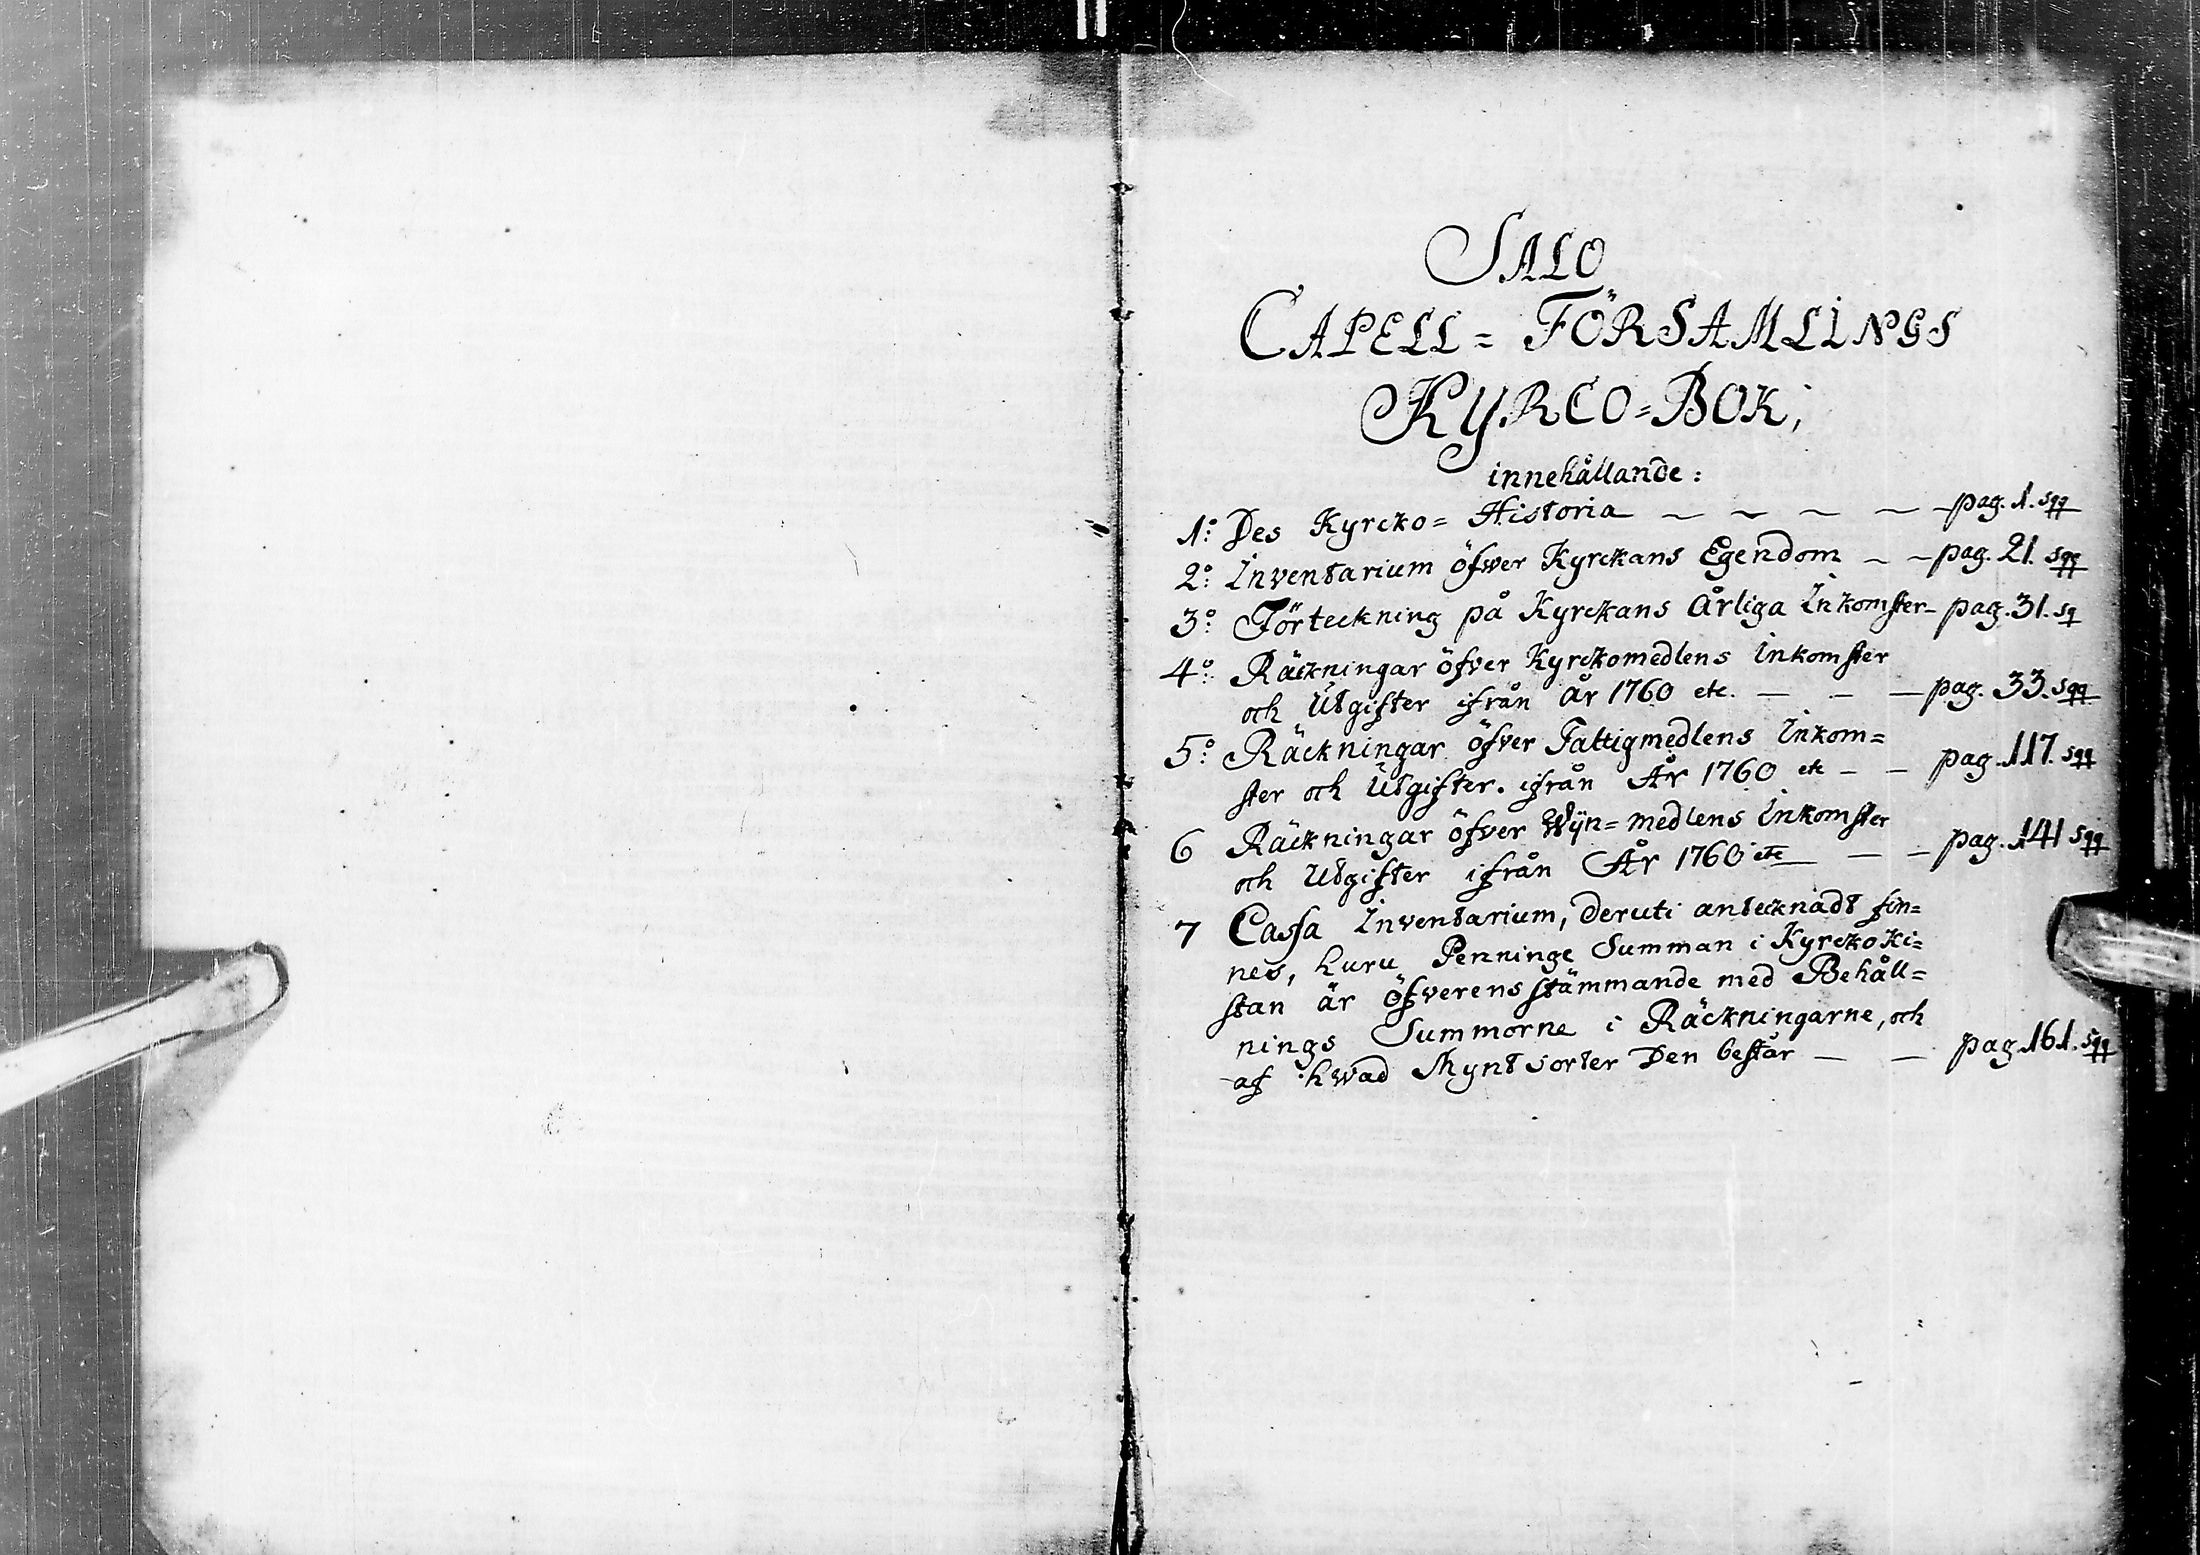 SALO
CAPELL = FÖRSAMLINGS
KYRCO = BOK,
innehållande:
1:o Des Kyrcko = Historia — — — — — pag. 1. sqq
2:o Inventarium öfwer Kyrckans Egendom — — pag. 21. sqq
3:o Förteckning på Kyrckans Årliga Inkomster — pag. 31. sq
4:o Räckningar öfver Kyrckomedlens Inkomster
och Utgifter ifrån År 1760 etc. — — — pag. 33. sqq
5:o Räckningar öfver Fattigmedlens Inkom=
ster och Utgifter. ifrån År 1760 etc — — pag. 117. sqq
6 Räckningar öfver Wijn = medlens Inkomster
och Utgifter ifrån År 1760 etc — — pag. 141 sqq
7 Cassa Inventarium, deruti antecknadt fin=
nes, huru Penninge Summan i Kyrcko Ki=
stan är öfverensstämmande med Behåll=
nings Summorne i Räckningarne, och
af hwad Myntsorter Den består — — pag. 161. sqq